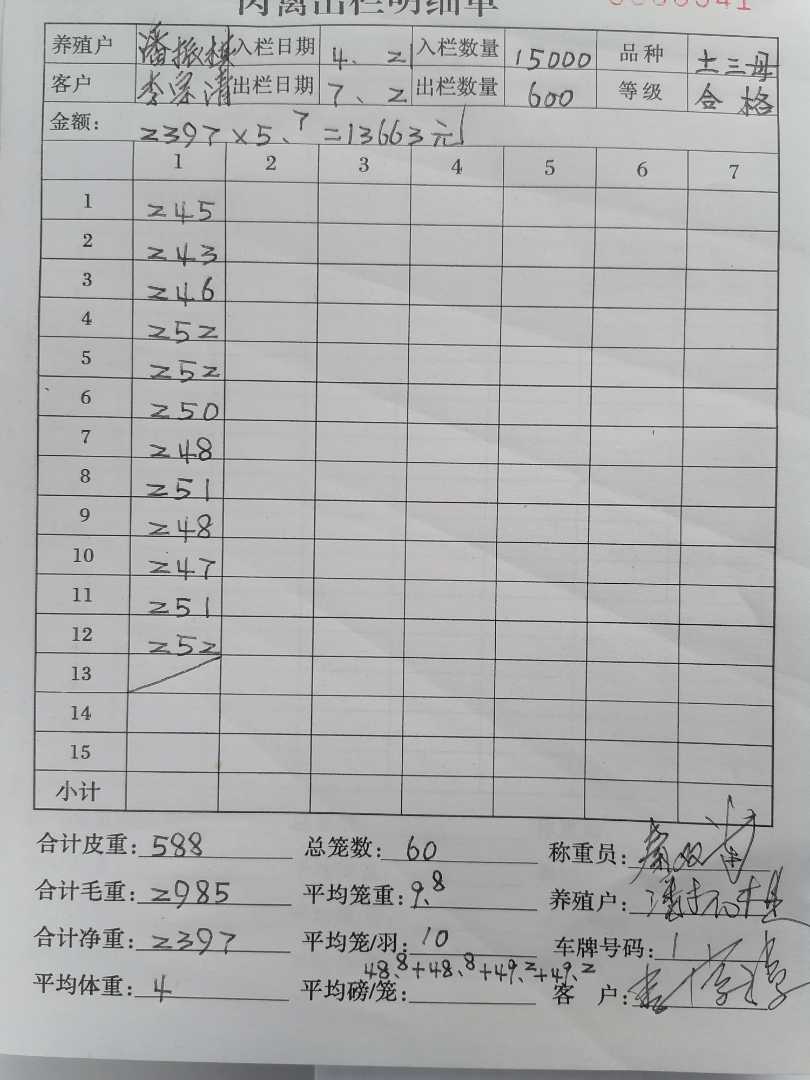 肉禽出栏明细单
养殖户 潘振棋 入栏日期 4、21 入栏数量 15000 品种 土三母
客户 李宗清 出栏日期 7、2 出栏数量 600 等级 合格
金额: 2397×5.7=13663元
1 2 3 4 5 6 7
1 245
2 243
3 246
4 252
5 252
6 250
7 248
8 251
9 248
10 247
11 251
12 252
13
14
15
小计
合计皮重: 588 总笼数: 60 称重员:
合计毛重: 2985 平均笼重: 9.8 养殖户:
合计净重: 2397 平均笼/羽: 10 车牌号码: 1
48.8+48.8+49.2+49.2
平均体重: 4 平均磅/笼: 客户: